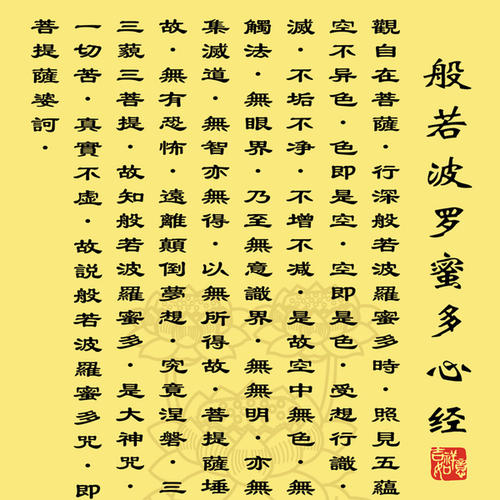 般若波罗蜜多心经
吉祥如意
觀自在菩薩·行深般若波羅蜜多時·照見五蘊
空不异色·色即是空·空即是色·受想行識·
滅·不垢不净·不增不减·是故空中無色·無
觸法·無眼界·乃至無意識界·無無明·亦無
集滅道·無智亦無得·以無所得故·菩提薩埵
故·無有恐怖·遠離顛倒夢想·究竟涅磐·三
三藐三菩提·故知般若波羅蜜多·是大神咒·
一切苦·真實不虚·故説般若波羅蜜多咒·即
菩提薩婆訶·